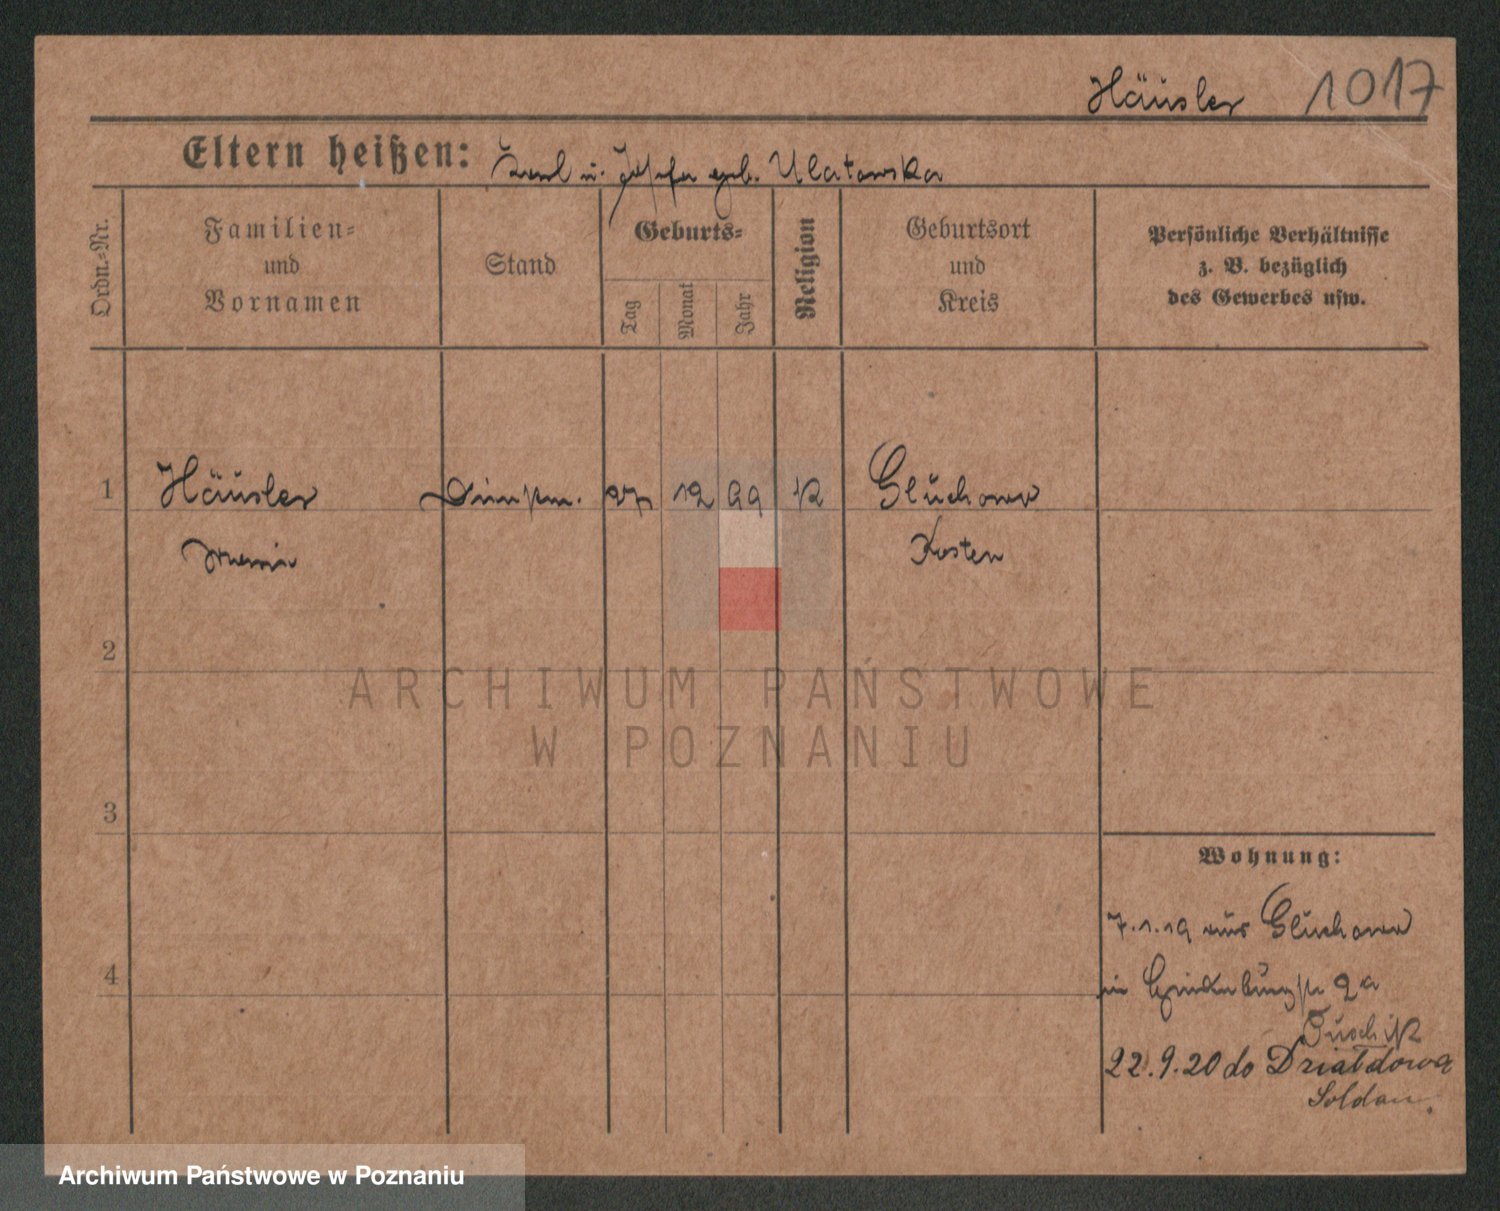 Häusler 1017
Eltern heißen: Karl u. Josefa geb. Ulatowska
Ordn.-Nr.
Familien-
und
Vornamen
Stand
Geburts-
Tag
Monat
Jahr
Religion
Geburtsort
und
Kreis
Persönliche Verhältnisse
z. B. bezüglich
des Gewerbes usw.
1 Häusler 27 12 99 K Gluchowo
Kosten
2
ARCHIWUM PAŃSTWOWE
W POZNANIU
3
Wohnung:
7.1.19 aus Gluchowo
in 2a
4
22.9.20 do Działdowa
Soldau.
Archiwum Państwowe w Poznaniu